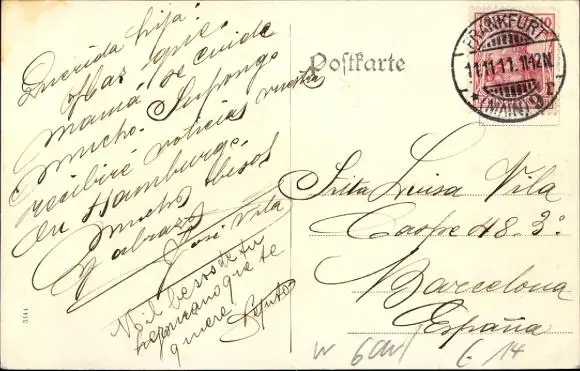 Querida hija:
Haz que
mamá se cuide
mucho. Supongo
recibiré noticias vuestras
en Hamburgo.
Muchos besos
y abrazos
José Vila
Mil besos de tu
hermano que te
quiere
Postkarte
FRANKFURT
11.11.11. 11-12N.
* (MAIN) 9
Srta Luisa Vila
Castre 48-3º
Barcelona
España
3144
14